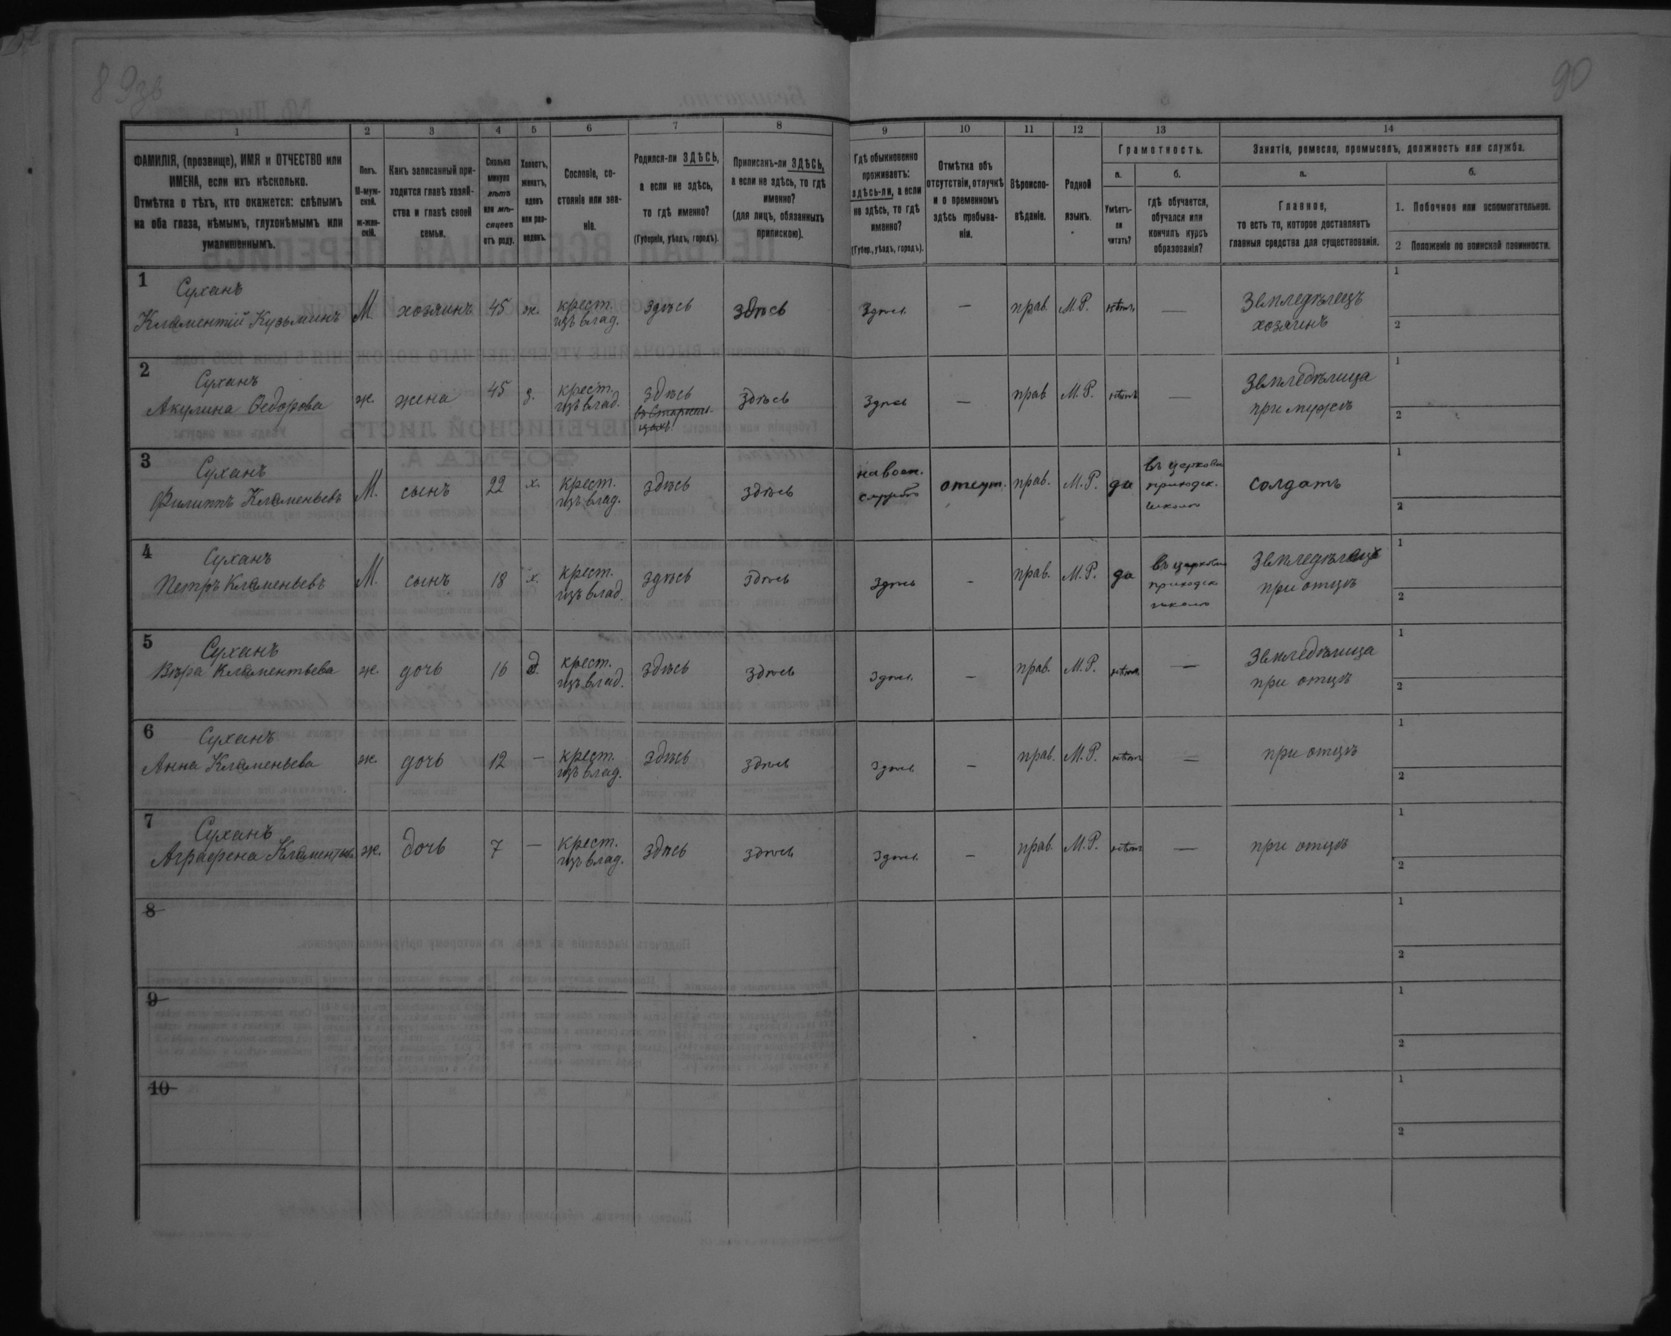 89 зв
90
1 2 3 4 5 6 7 8 9 10 11 12 13 14
ФАМИЛІЯ, (прозвище), ИМЯ и ОТЧЕСТВО или
ИМЕНА, если ихъ нѣсколько.
Отмѣтка о тѣхъ, кто окажется: слѣпымъ
на оба глаза, нѣмымъ, глухонѣмымъ или
умалишеннымъ.
Полъ.
М-муж-
ской.
Ж-жен-
скій.
Какъ записанный при-
ходится главѣ хозяй-
ства и главѣ своей
семьи.
Сколько
минуло
лѣтъ
или мѣ-
сяцевъ
отъ роду.
Холостъ,
женатъ,
вдовъ
или раз-
веденъ.
Сословіе, со-
стояніе или зва-
ніе.
Родился-ли ЗДѢСЬ,
а если не здѣсь,
то гдѣ именно?
(Губернія, уѣздъ, городъ).
Приписанъ-ли ЗДѢСЬ,
а если не здѣсь, то гдѣ
именно?
(для лицъ, обязанныхъ
припискою).
Гдѣ обыкновенно
проживаетъ:
здѣсь-ли, а если
не здѣсь, то гдѣ
именно?
(Губер., уѣздъ, городъ).
Отмѣтка объ
отсутствіи, отлучкѣ
и о временномъ
здѣсь пребыва-
ніи.
Вѣроиспо-
вѣданіе.
Родной
языкъ.
Грамотность.
а.
Умѣетъ-
ли
читать?
б.
гдѣ обучается,
обучался или
кончилъ курсъ
образованія?
Занятіе, ремесло, промыселъ, должность или служба.
а.
Главное,
то есть то, которое доставляетъ
главныя средства для существованія.
б.
1. Побочное или вспомогательное.
2 Положеніе по воинской повинности.
1
Суханъ
Климентій Кузьминъ М. хозяинъ 45 ж. крест. изъ влад. здѣсь здѣсь здѣсь — прав. М.Р. нѣтъ — Земледѣлецъ
хозяинъ
1
2
2
Суханъ
Акулина Ѳедорова ж. жена 45 з. крест. изъ влад. здѣсь здѣсь здѣсь — прав М.Р. нѣтъ — Земледѣлица
при мужѣ
1
2
3
Суханъ
Филиппъ Клименьевъ М. сынъ 22 х. крест. изъ влад. здѣсь здѣсь на воен. службѣ отсут. прав. М.Р. да въ церковно приходск. школѣ солдатъ
1
2
4
Суханъ
Петръ Клименьевъ М. сынъ 18 х. крест. изъ влад. здѣсь здѣсь здѣсь — прав. М.Р. да въ церковно приходск школѣ Земледѣлецъ
при отцѣ
1
2
5
Суханъ
Вѣра Климентьева ж. дочь 16 д. крест. изъ влад. здѣсь здѣсь здѣсь — прав. М.Р. нѣтъ — Земледѣлица
при отцѣ
1
2
6
Суханъ
Анна Клименьева ж. дочь 12 — крест. изъ влад. здѣсь здѣсь здѣсь — прав. М.Р. нѣтъ — при отцѣ
1
2
7
Суханъ
Аграфена Климентьева ж. дочь 7 — крест. изъ влад. здѣсь здѣсь здѣсь — прав. М.Р. нѣтъ — при отцѣ
1
2
8
1
2
9
1
2
10
1
2